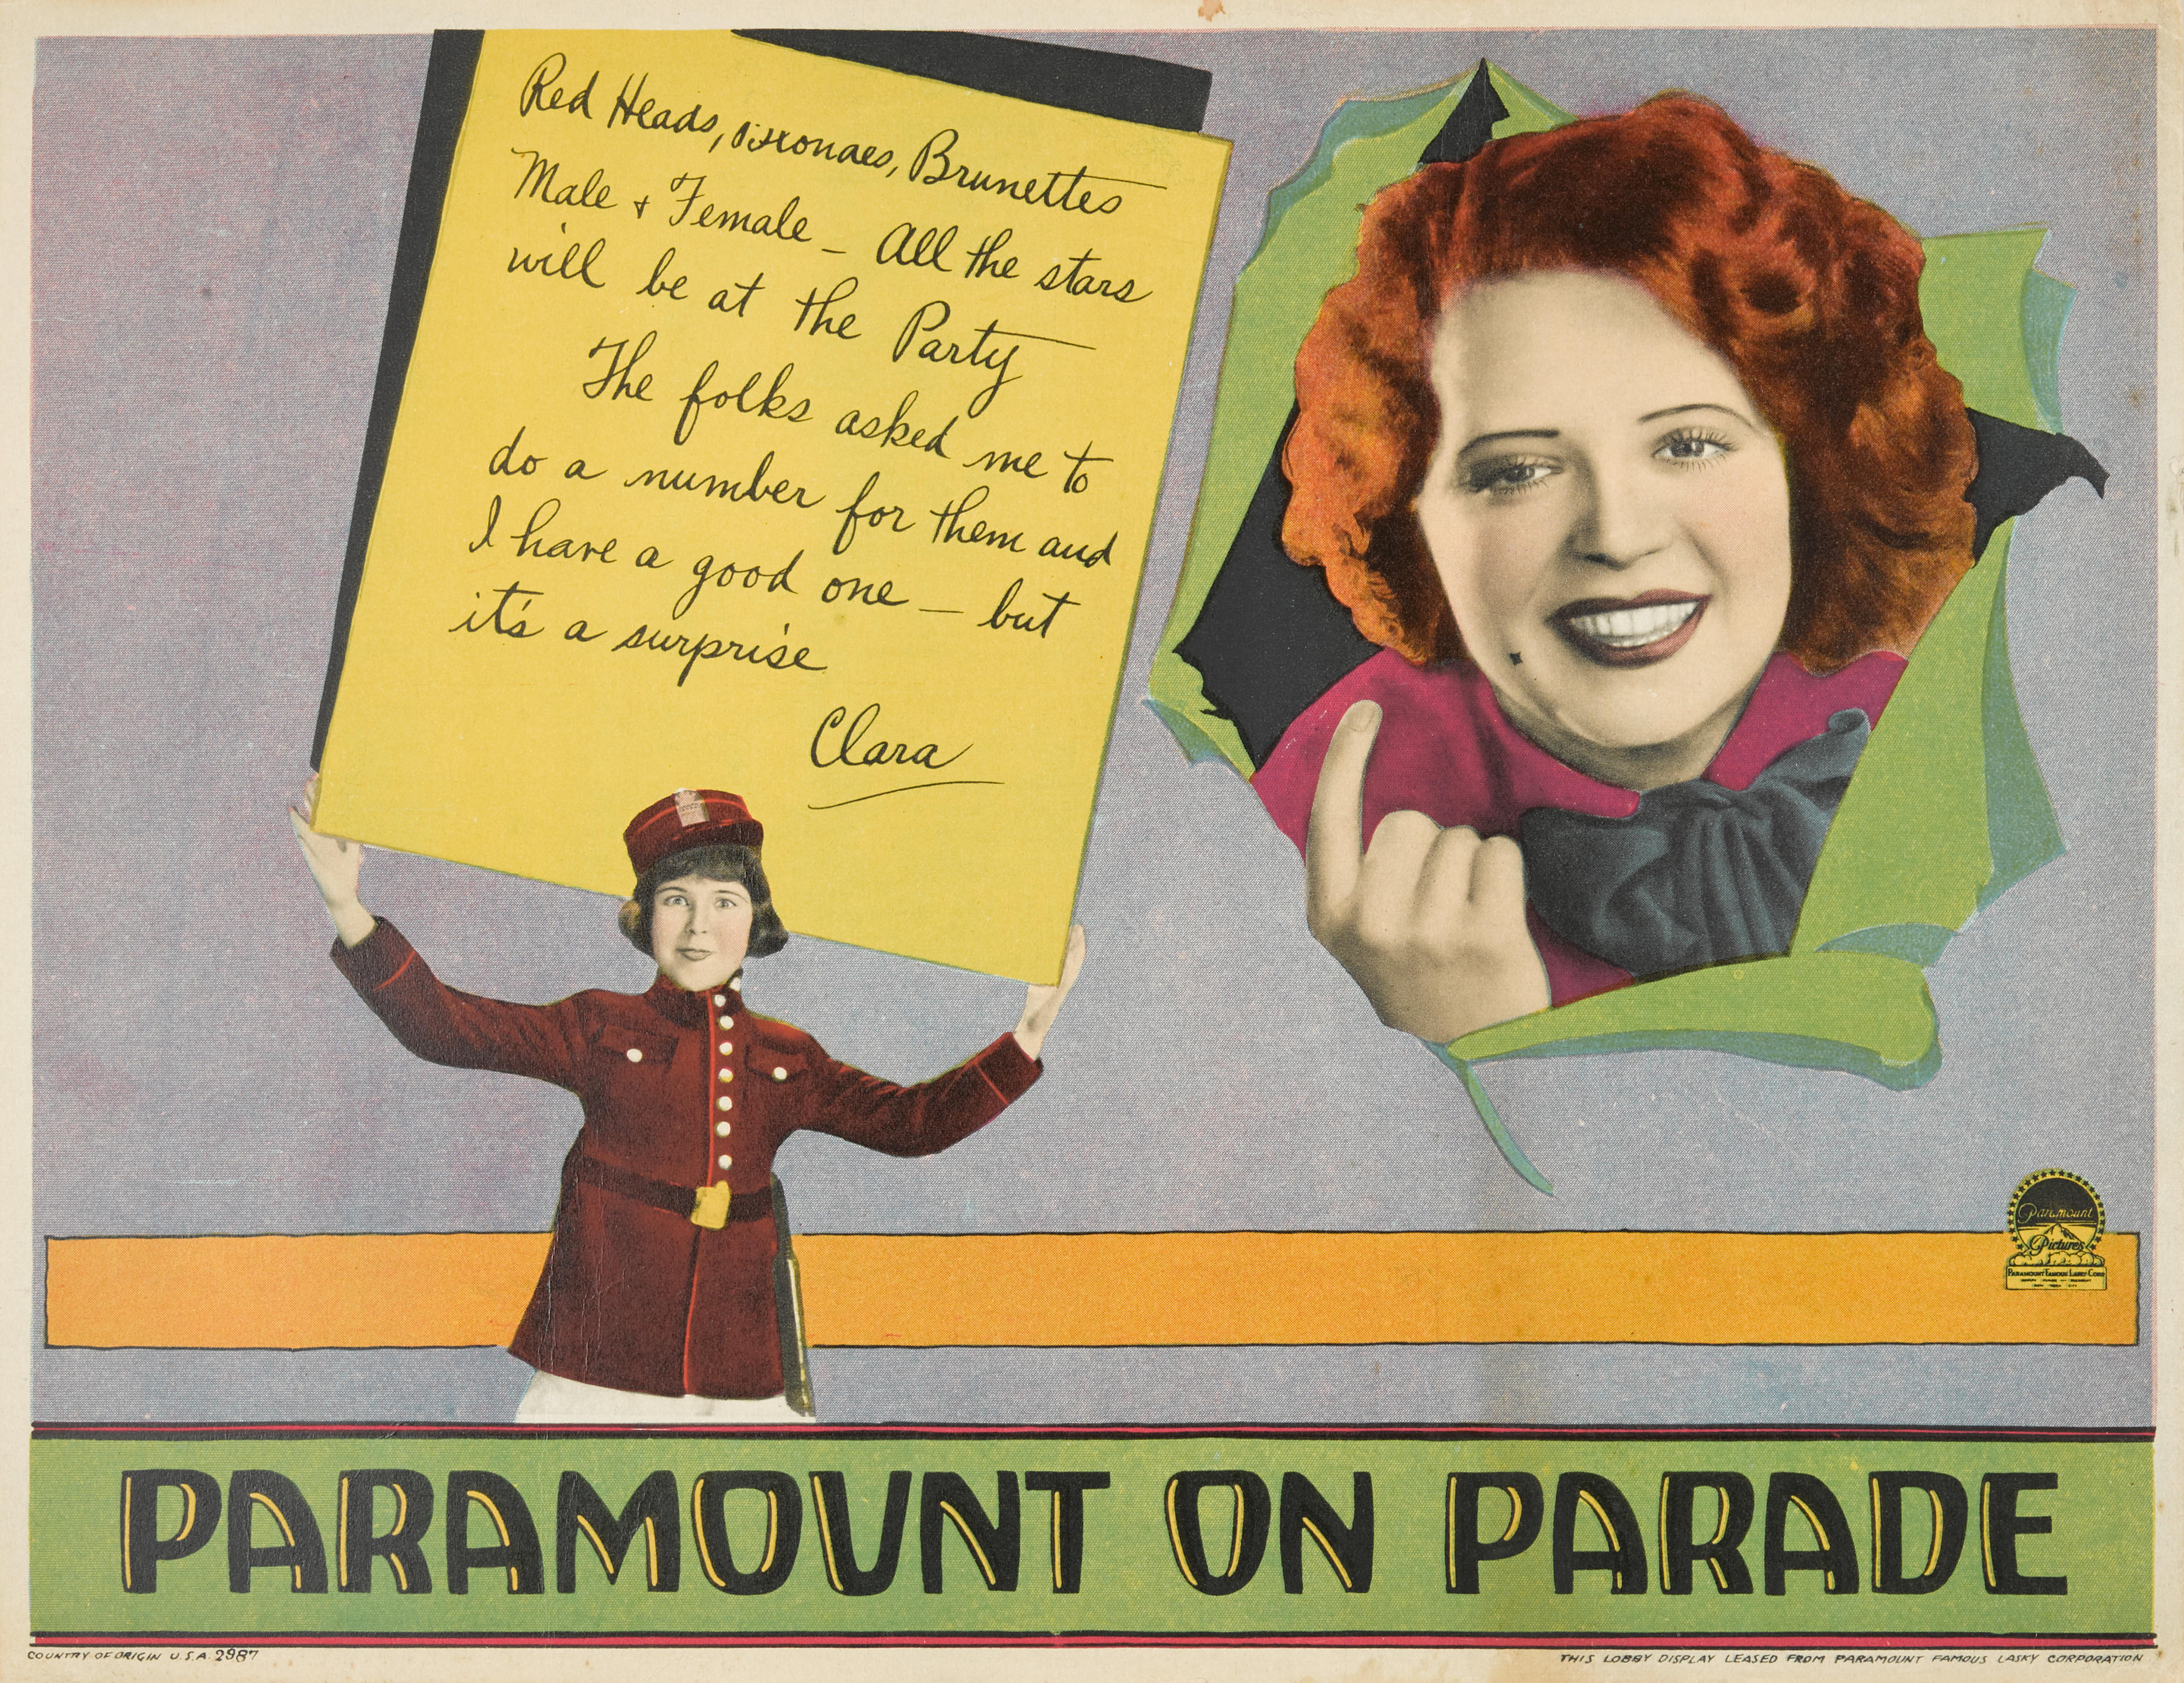 Red Heads, Brunettes
Male + Female – All the stars
will be at the Party
The folks asked me to
do a number for them and
I have a good one – but
it's a surprise
Clara
Paramount
Pictures
PARAMOUNT FAMOUS LASKY CORP
PARAMOUNT ON PARADE
COUNTRY OF ORIGIN U.S.A. 2987
THIS LOBBY DISPLAY LEASED FROM PARAMOUNT FAMOUS LASKY CORPORATION